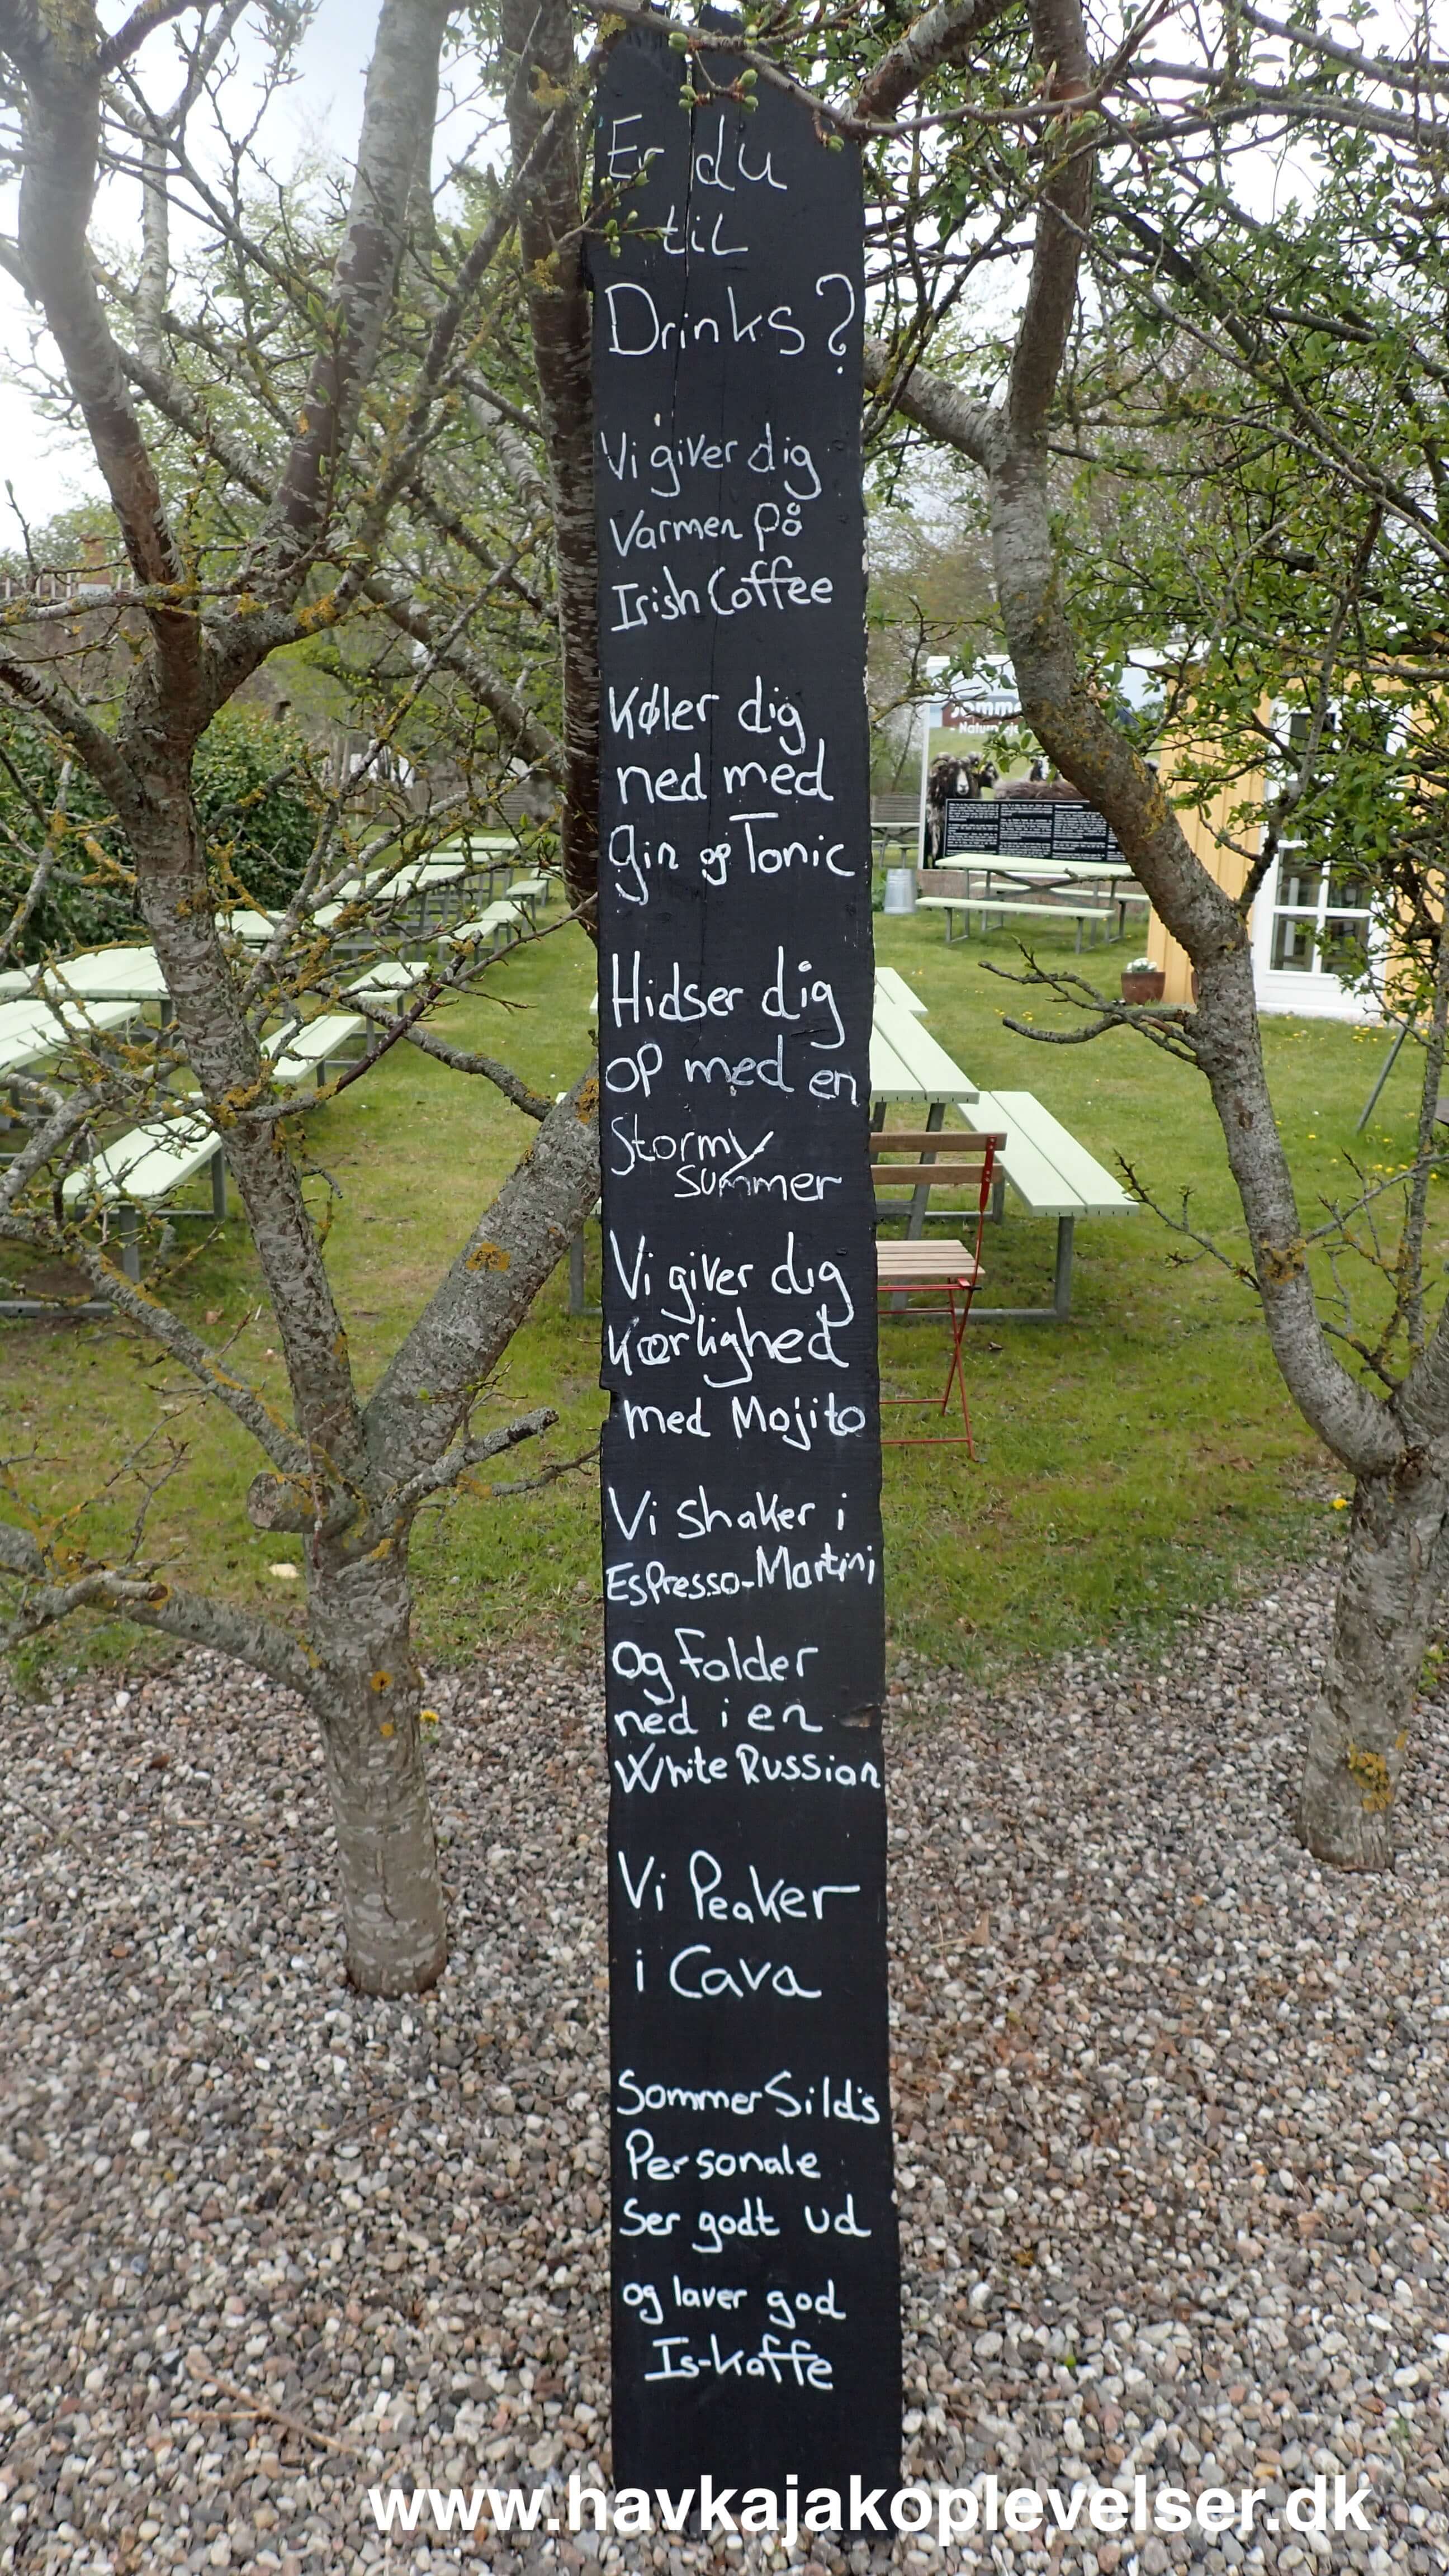 Er du
til
Drinks?
Vi giver dig
Varmen på
Irish Coffee
Køler dig
ned med
Gin og Tonic
Hidser dig
op med en
Stormy
summer
Vi giver dig
Kærlighed
med Mojito
Vi shaker i
Espresso-Martini
Og falder
ned i en
White Russian
Vi Peaker
i Cava
SommerSild's
Personale
Ser godt ud
og laver god
Is-kaffe
www.havkajakoplevelser.dk